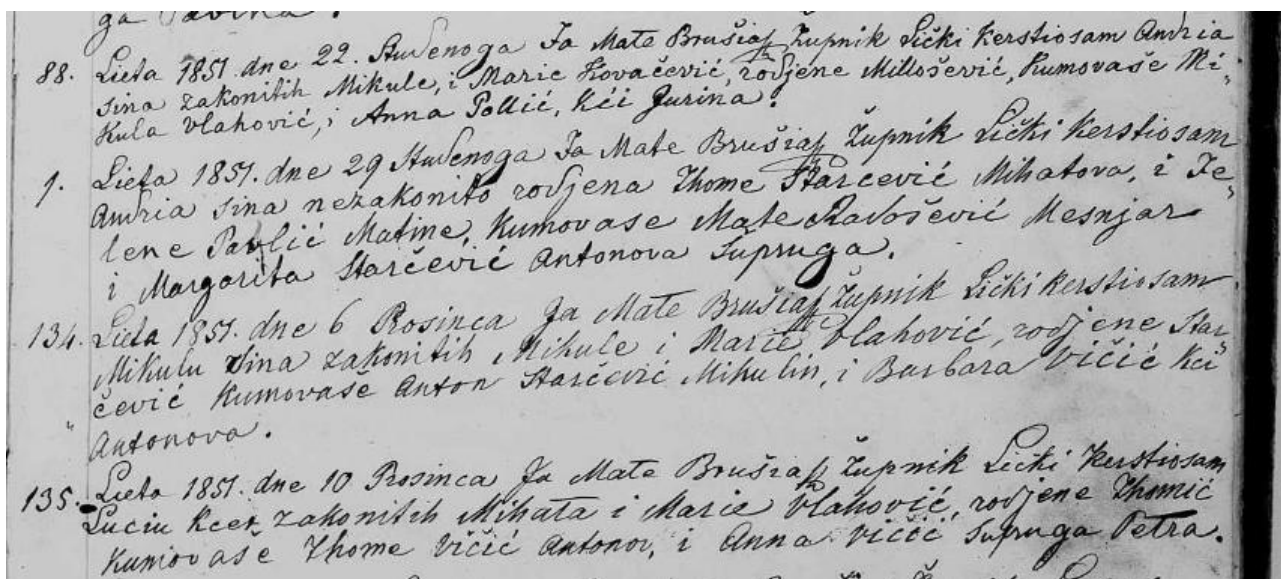 ga
88. Lieta 1851. dne 22. Studenoga Ja Mate Brušiaf Župnik Lički kerstiosam Andria
sina zakonitih Mikule, i Marie Kovačević, rodjene Millošević, Kumovaše Mi„
kula Vlahović, i Anna Pollić, kći Jurina.
1. Lieta 1851. dne 29 Studenoga Ja Mate Brušiaf Župnik Lički kerstiosam
Andria sina nezakonito rodjena Thome Starcević Mihatova, i Je„
lene Pavlić Matine, Kumovase Mate Radošević Mesnjar
i Margarita Starčević Antonova Supruga.
134. Lieta 1851. dne 6 Prosinca Ja Mate Brušiaf Župnik Lički kerstiosam
Mikulu sina zakonitih Mikule i Marie Vlahović, rodjene Star„
čević Kumovaše Anton Starčević Mikulin, i Barbara Vičić kći
Antonova.
135. Lieta 1851. dne 10 Prosinca Ja Mate Brušiaf Župnik Lički kerstiosam
Luciu kcer zakonitih Mihata i Marie Vlahović, rodjene Thomić
Kumovaše Thome Vičić Antonov, i Anna Vičić supruga Petra.